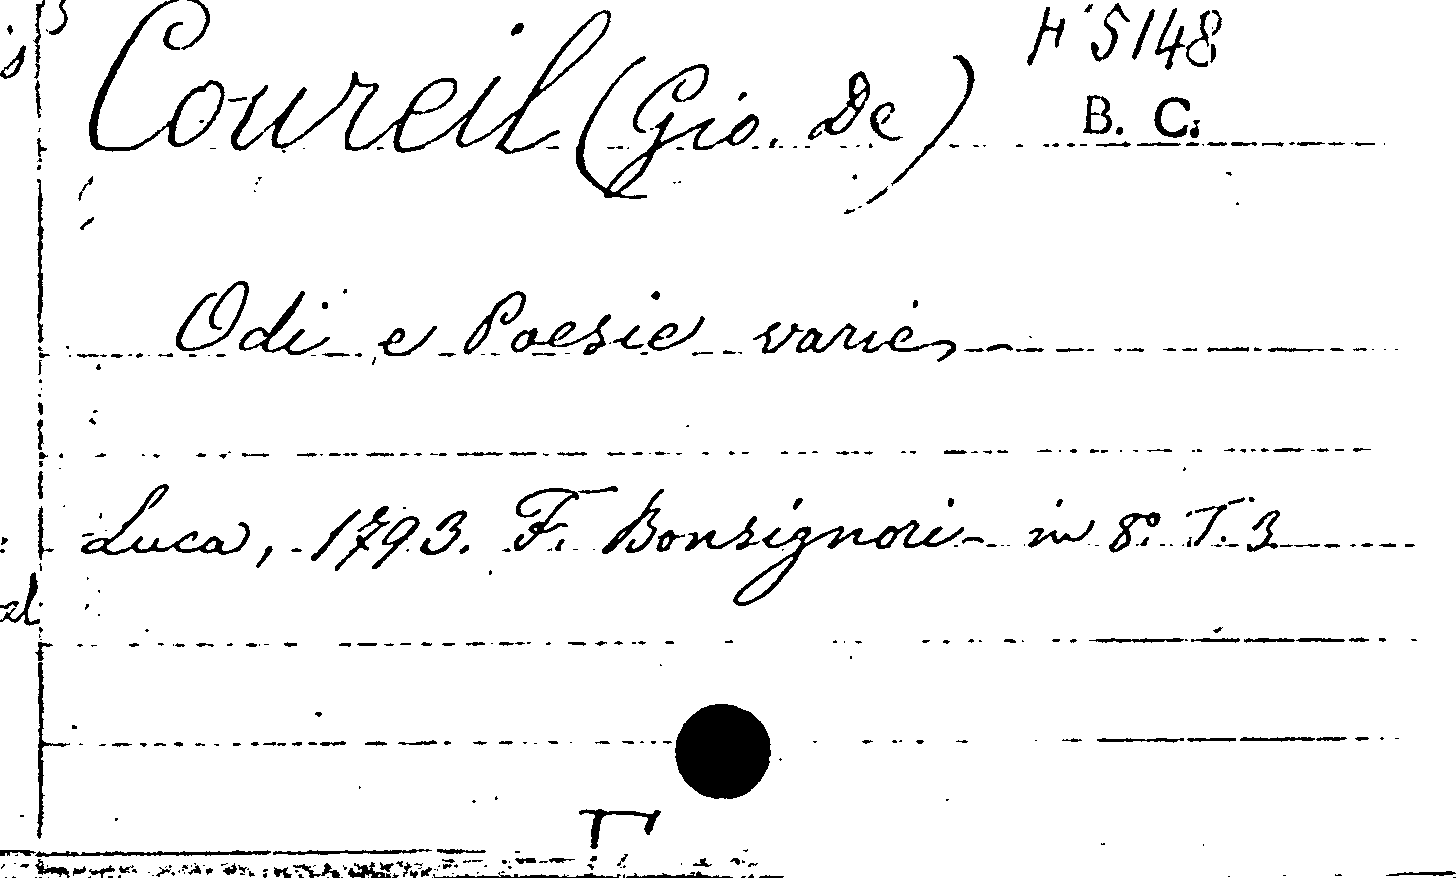 Coureil (Gio. De) H 5148
B. C.
Odi e Poesie varie, -
Luca, 1793. F. Bonsignori - in 8º. T. 3